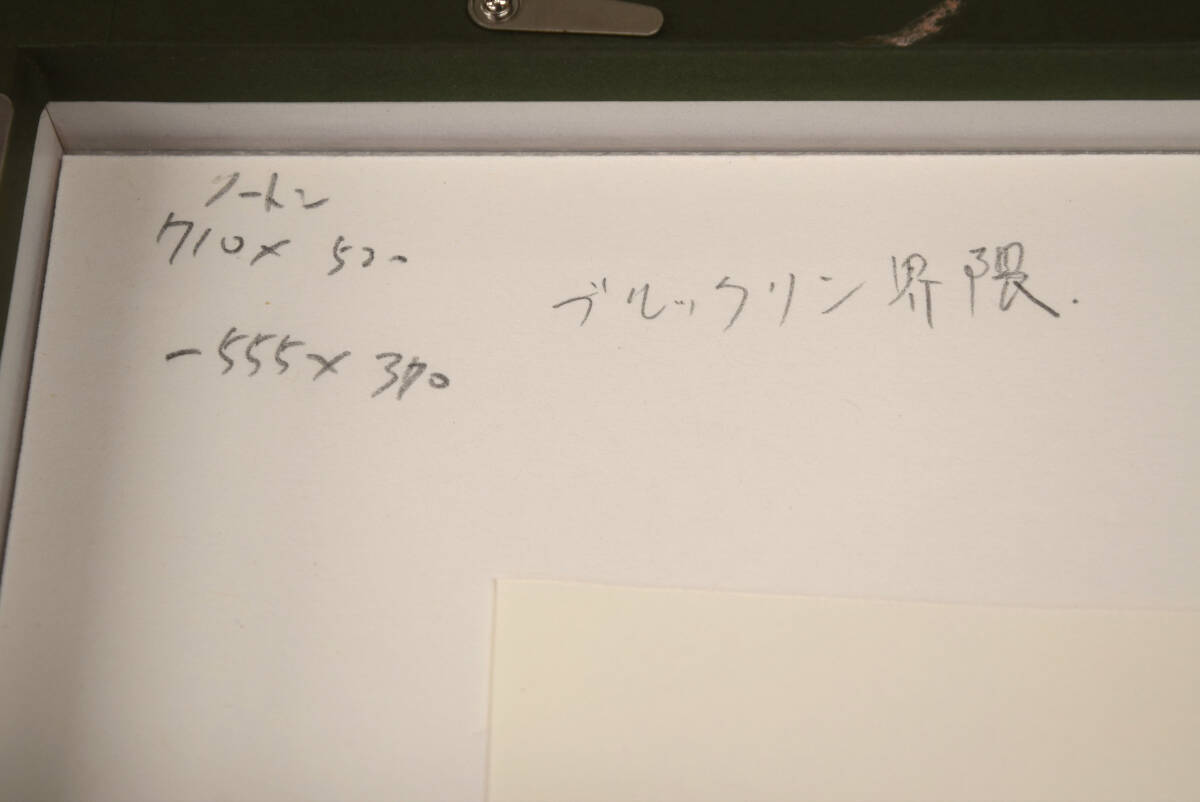 ノートン
710× 520
-555× 370
ブルックリン界隈.